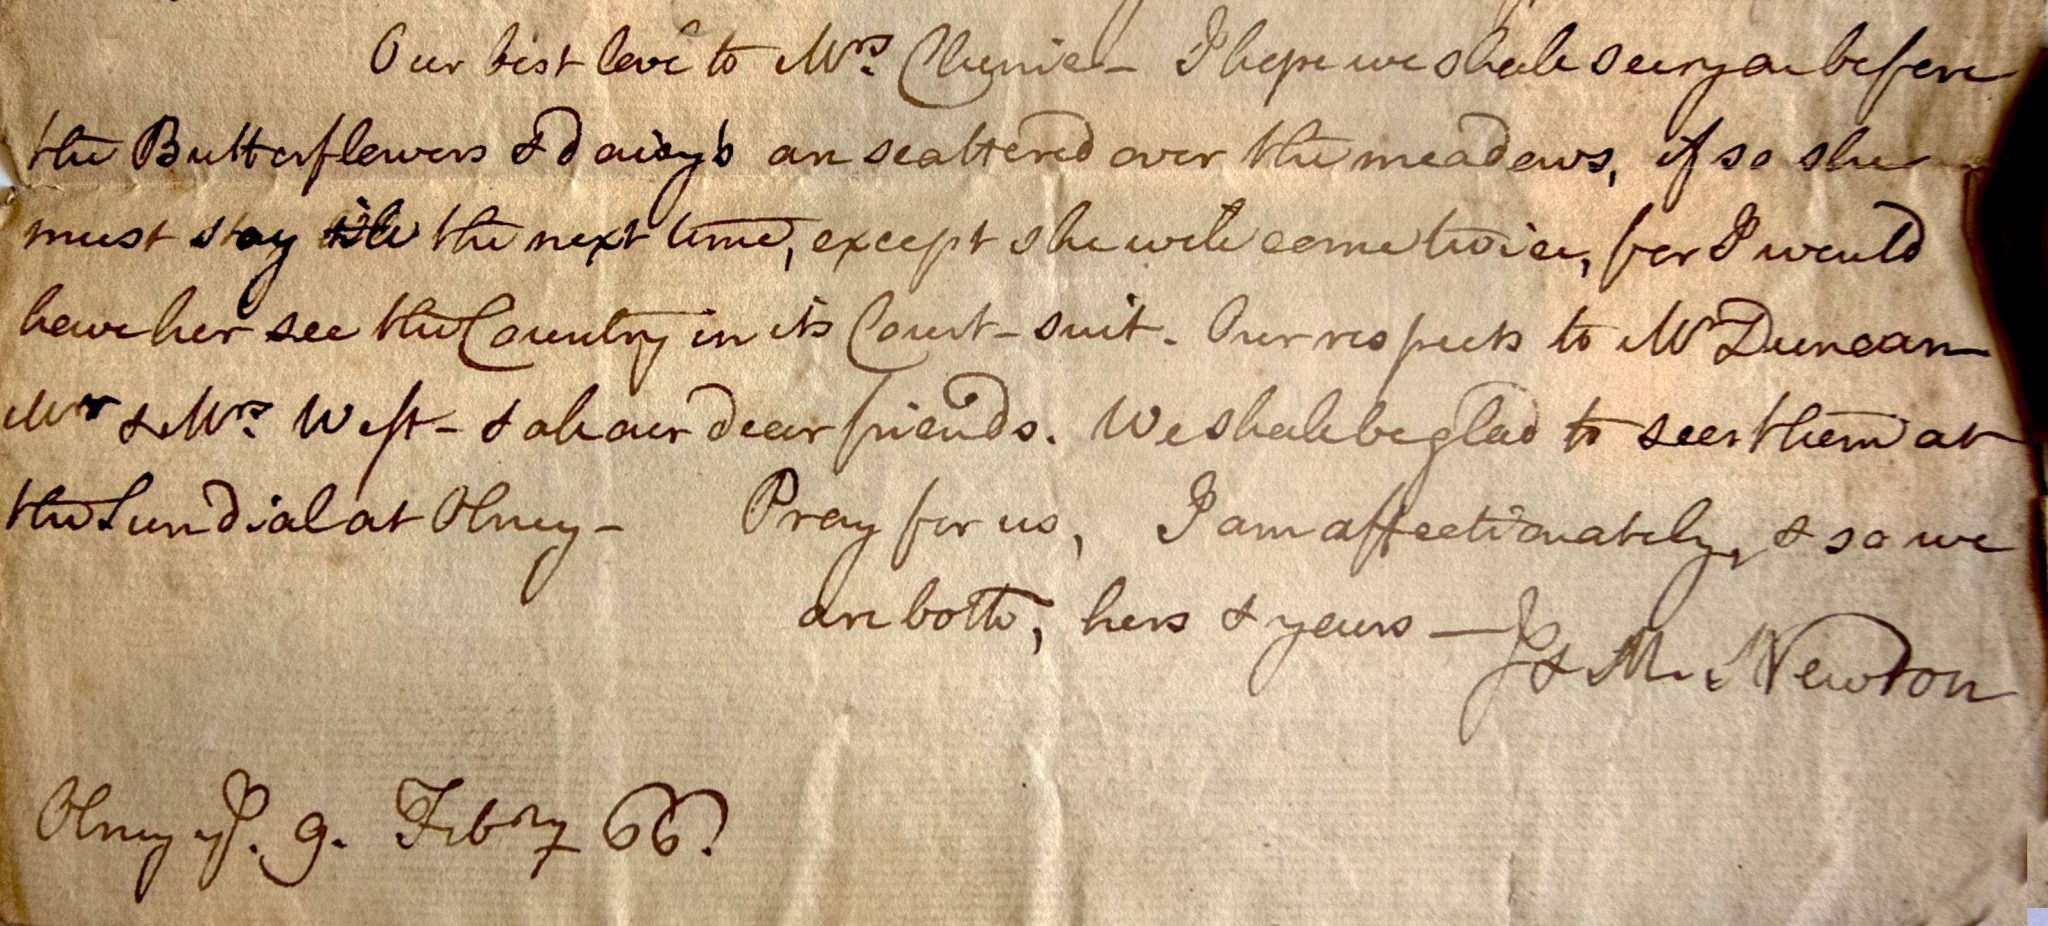 Our best love to Mrs. Clunie – I hope we shall see you before
the Butterflowers & daisy's are scattered over the meadows, if so she
must stay till the next time, except she will come twice, for I would
have her see the Country in its Court-suit. Our respects to Mr Duncan
Mr & Mrs. West – & all our dear friends. We shall be glad to see them at
the Sun dial at Olney – Pray for us, I am affectionately, & so we
are both, hers & yours — J & M. Newton
Olney ye. 9. Febry 66.